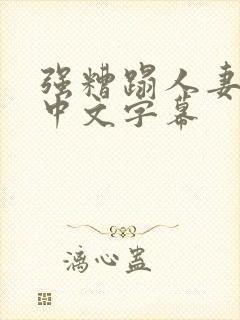 强糟蹋人妻
中文字幕
漓心蛊